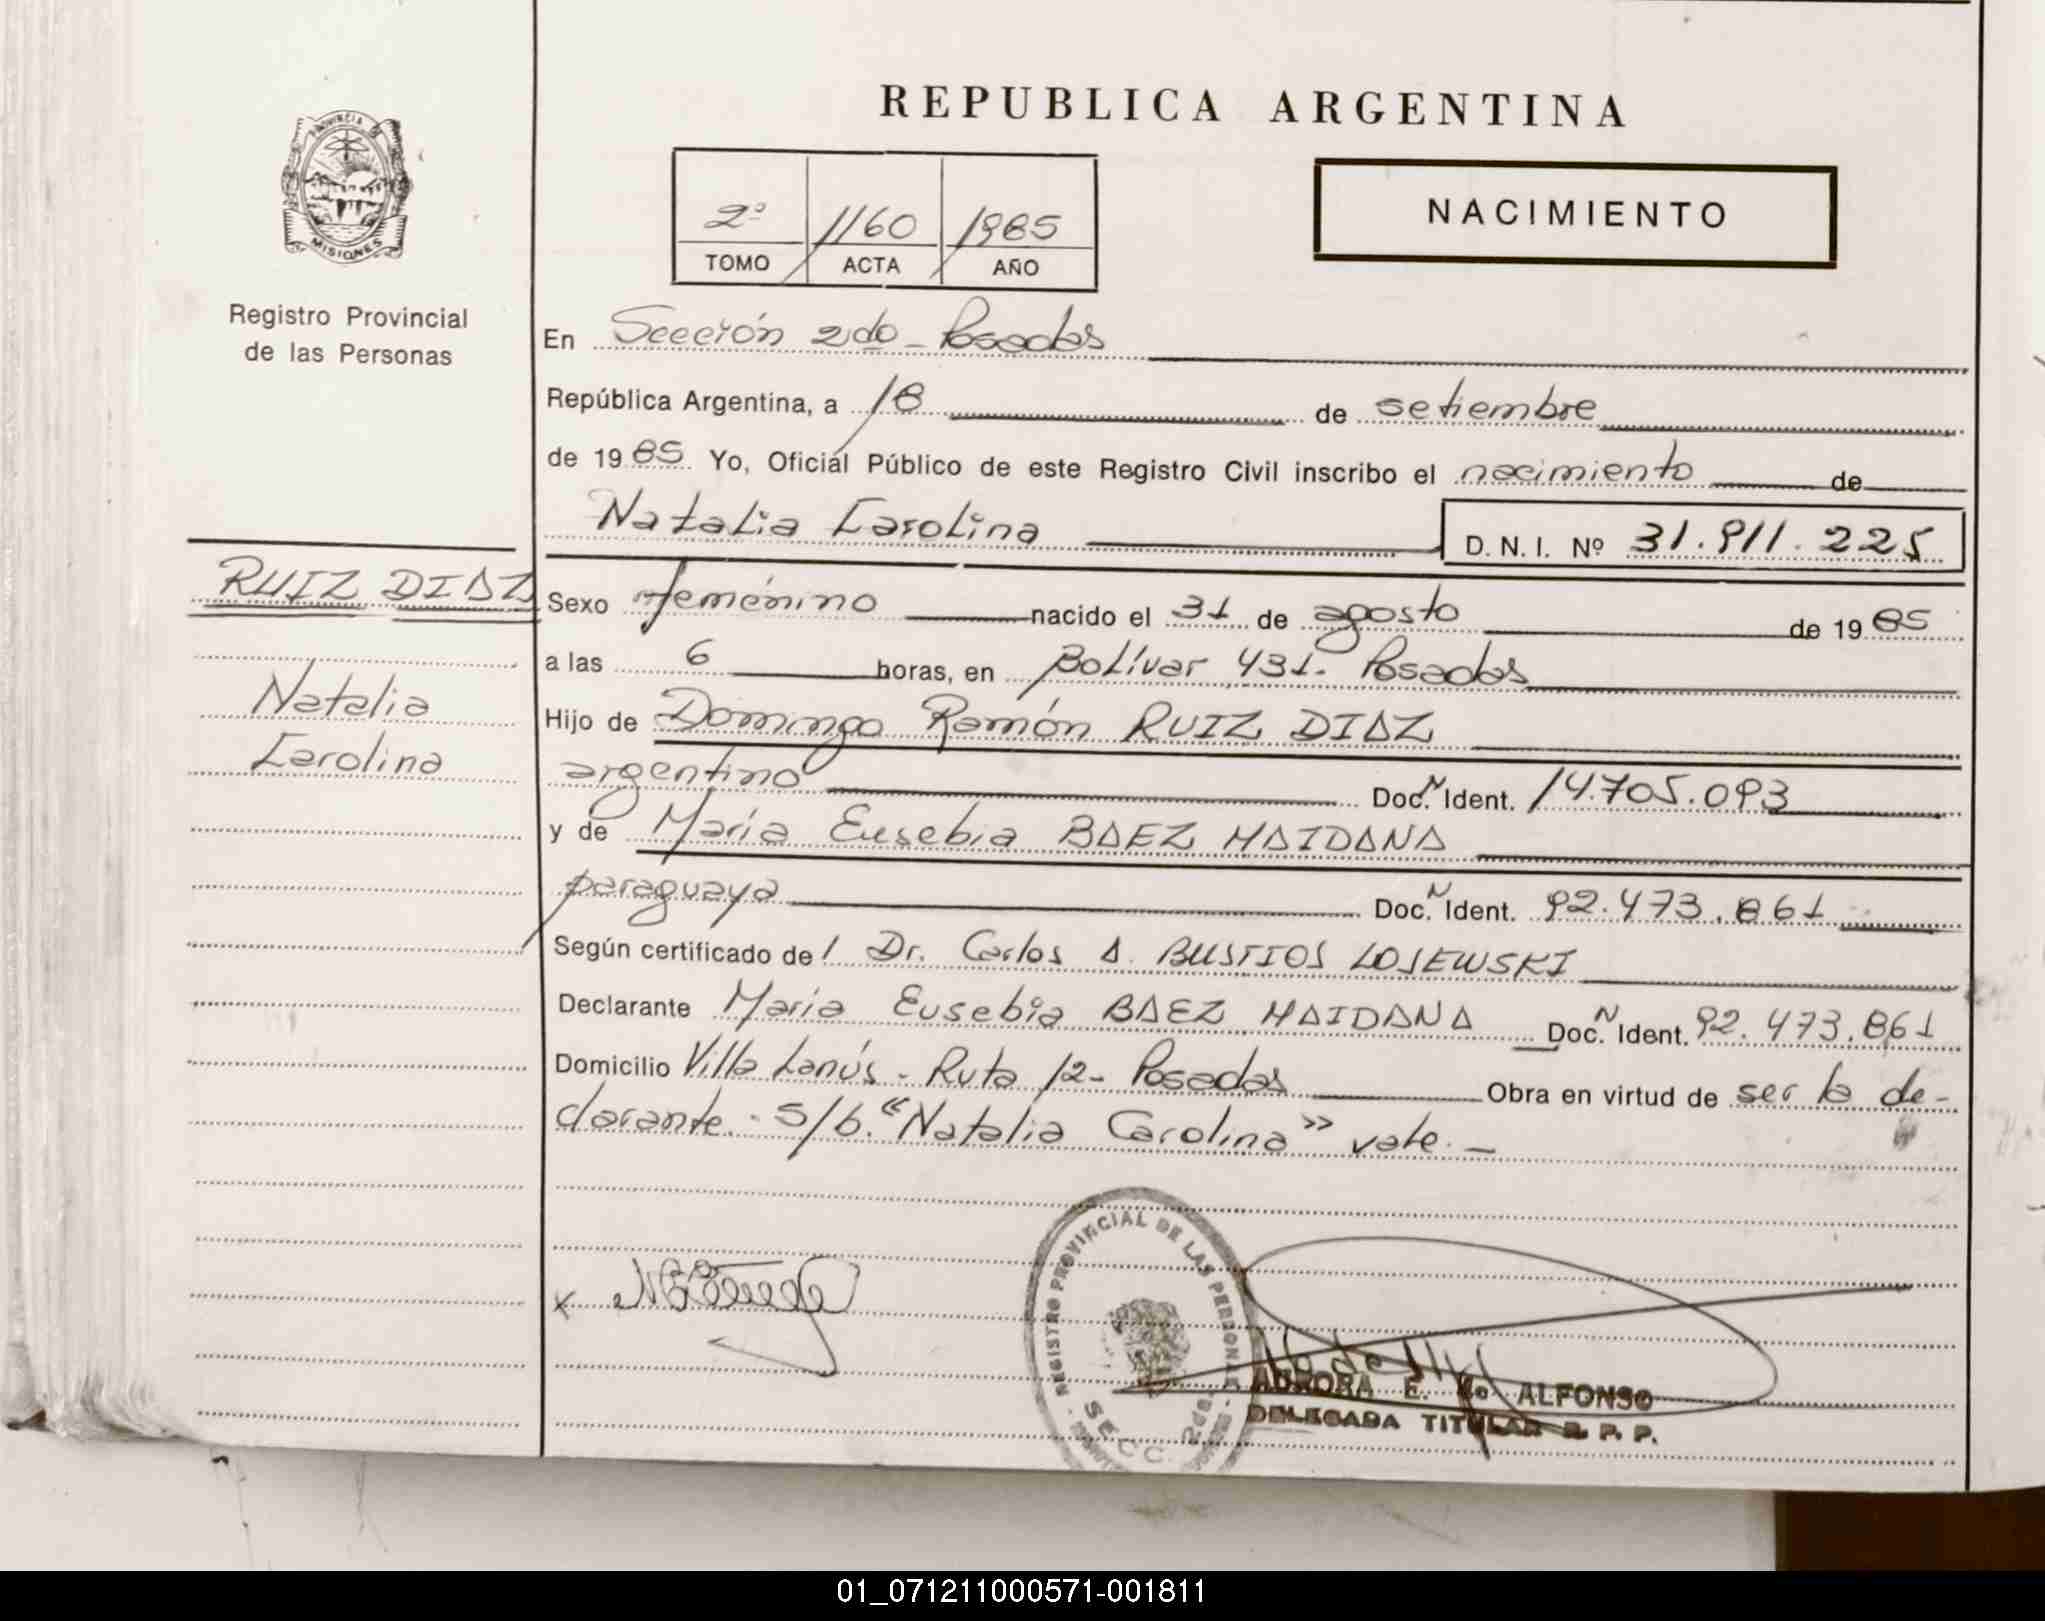 REPUBLICA ARGENTINA
PROVINCIA DE
MISIONES
2º 1160 1985
TOMO ACTA AÑO
NACIMIENTO
Registro Provincial
de las Personas
En Sección 2da - Posadas
República Argentina, a 18 de setiembre
de 1985. Yo, Oficial Público de este Registro Civil inscribo el nacimiento de
Natalia Carolina D. N. I. Nº 31.911.225
RUIZ DIAZ
Natalia
Carolina
Sexo femenino nacido el 31 de agosto de 1985
a las 6 horas, en Bolívar 431 - Posadas
Hijo de Domingo Ramón RUIZ DIAZ
argentino Doc. N Ident. 14.705.093
y de María Eusebia BAEZ MAIDANA
paraguaya Doc. N Ident. 92.473.861
Según certificado de / Dr. Carlos A. BUSTIOS LOSEWSKI
Declarante María Eusebia BAEZ MAIDANA Doc. N Ident. 92.473.861
Domicilio Villa Lanús - Ruta 12 - Posadas Obra en virtud de ser la de-
clarante. - S/b. "Natalia Carolina" vale. -
REGISTRO PROVINCIAL DE LAS PERSONAS
SECC. 2da.
x
AURORA E. de ALFONSO
DELEGADA TITULAR R. P. P.
01_071211000571-001811